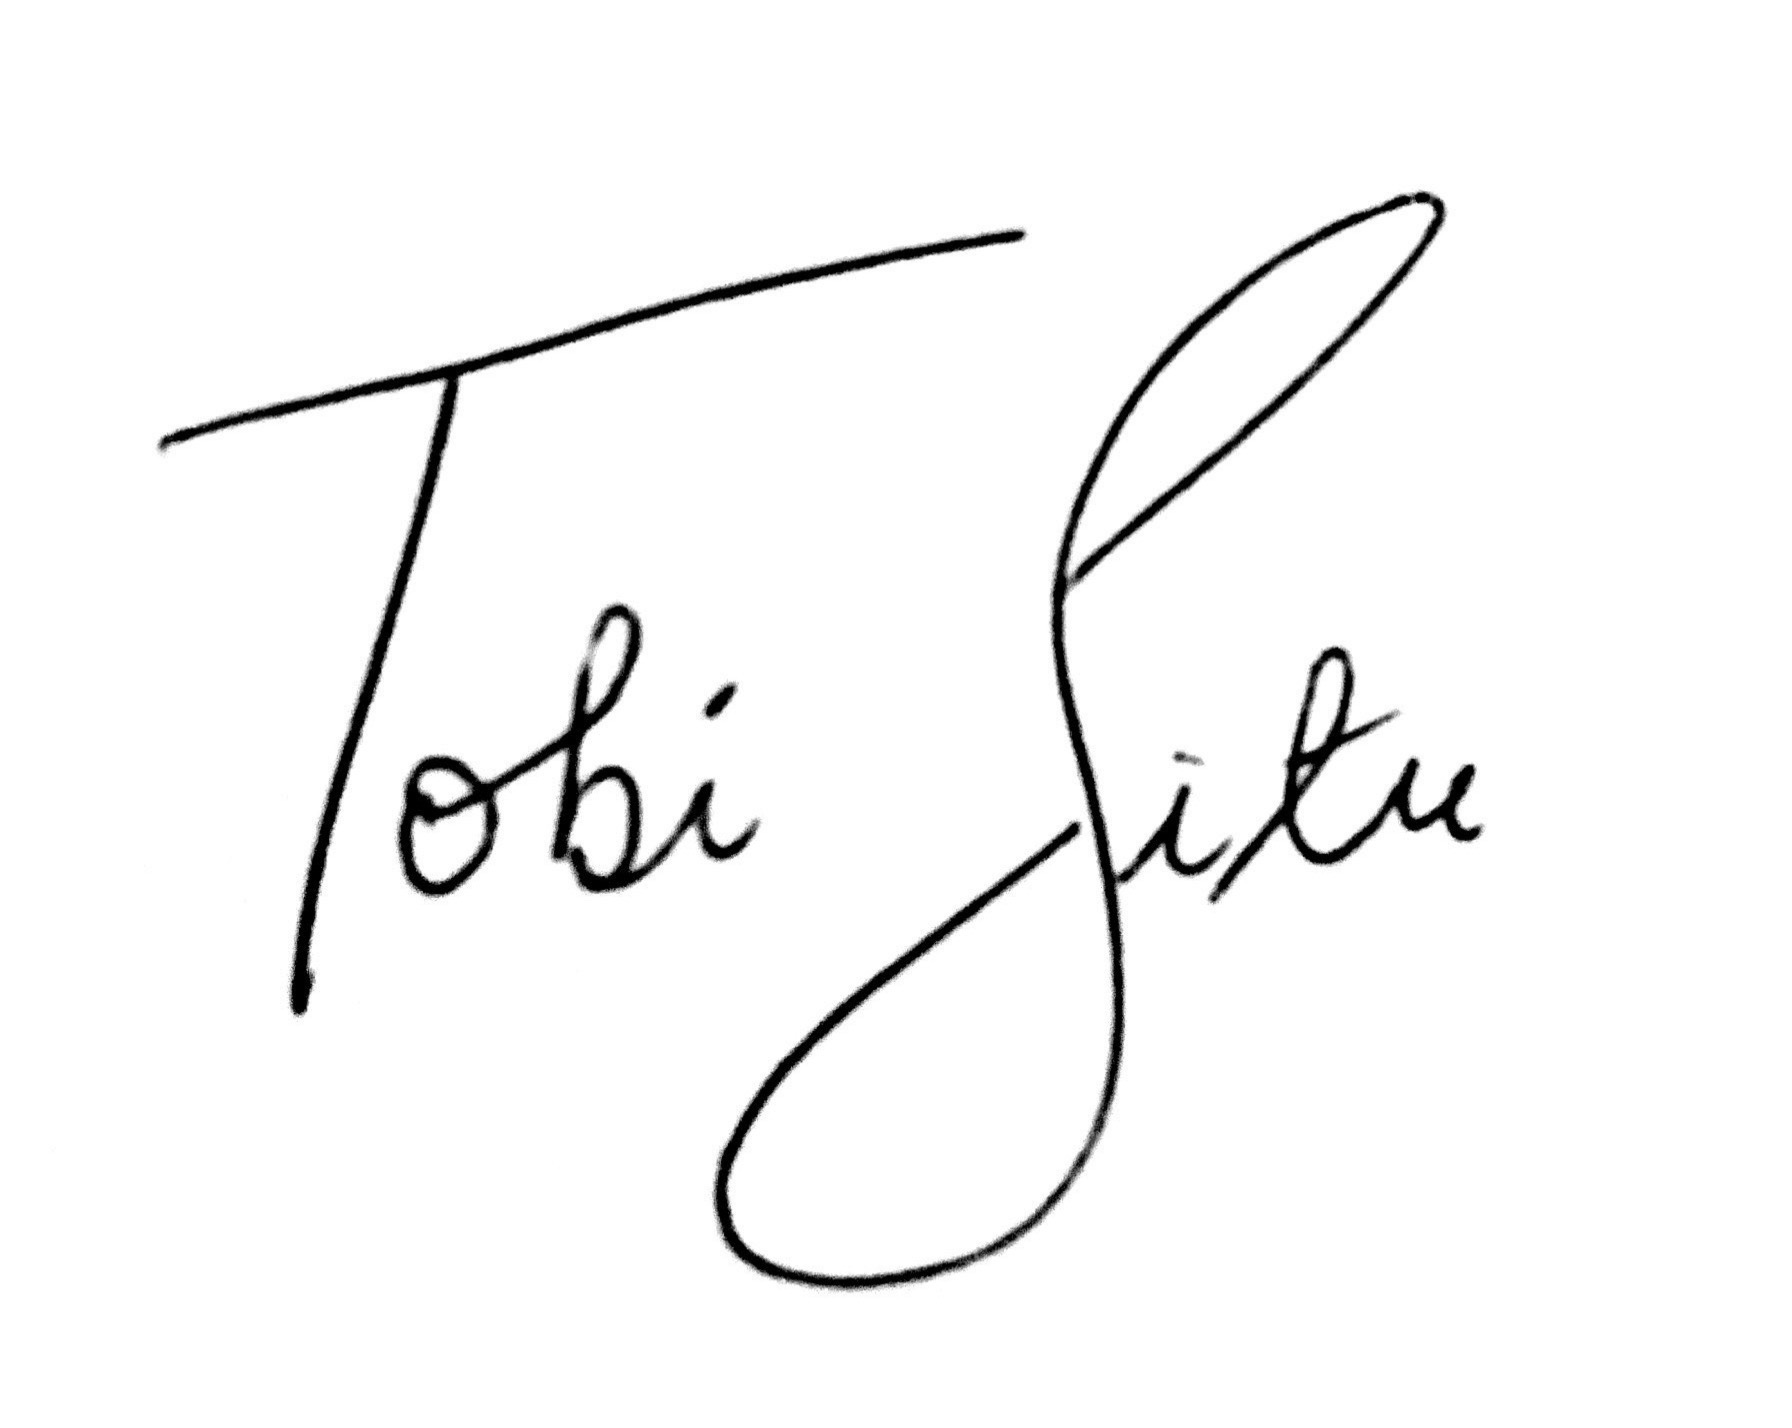 Tobi Situ